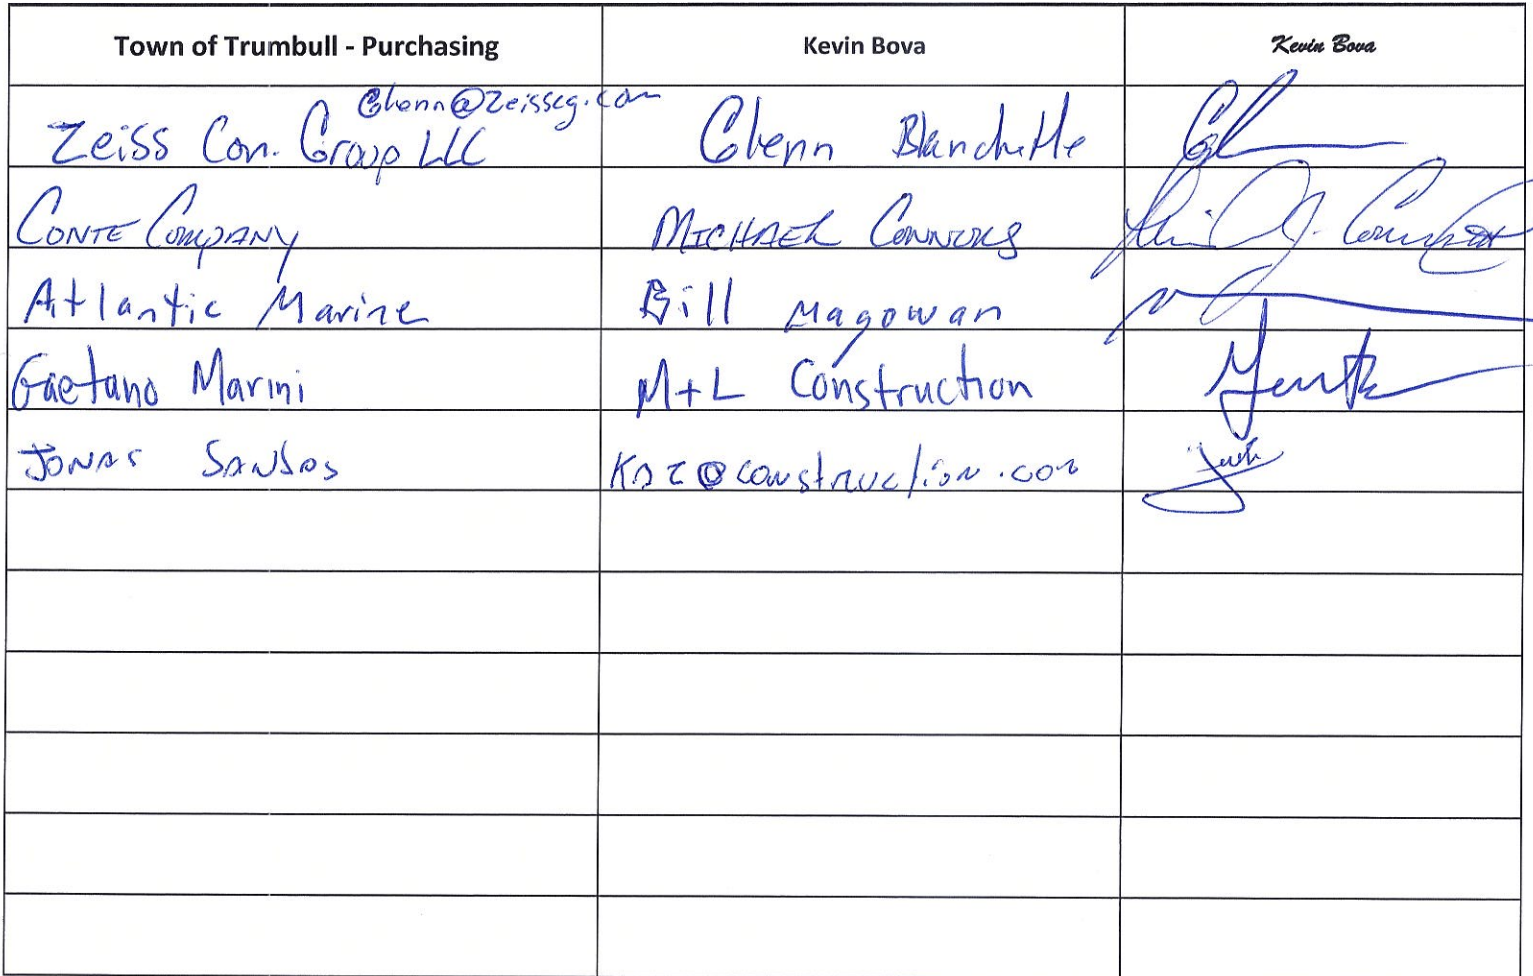 Town of Trumbull - Purchasing Kevin Bova Kevin Bova
Glenn@zeisscg.com
Zeiss Con. Group LLC Glenn Blanchette
Conte Company Michael Connors
Atlantic Marine Bill Magowan
Gaetano Marini M+L Construction
Jonas Santos KDZ@construction.com